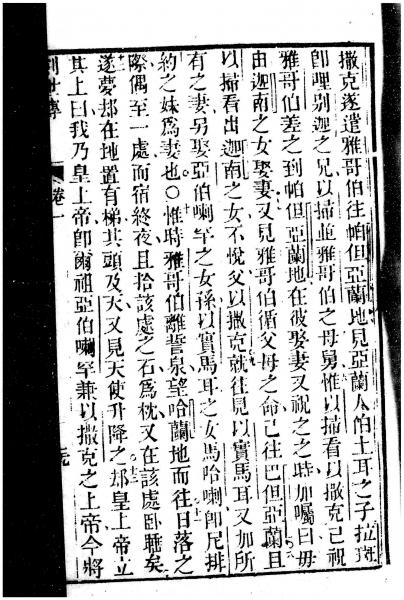 撒克遂遣雅哥伯往帕但亞蘭地見亞蘭人伯土耳之子拉班
卽哩別迦之兄以掃並雅哥伯之母舅惟以掃看以撒克已祝
雅哥伯差之到帕但亞蘭地在彼娶妻又祝之之時加囑曰毋
由迦南之女娶妻又見雅哥伯循父母之命已往巴但亞蘭且
以掃看出迦南之女不悅父以撒克就往見以實馬耳又加所
有之妻另娶亞伯喇罕之女孫以實馬耳之女馬哈喇卽尼排
約之妹爲妻也○惟時雅哥伯離誓泉望哈蘭地而往日落之
際偶至一處而宿終夜且拾該處之石爲枕又在該處卧睡矣
遂夢却在地置有梯其頭及天又見天使升降之却皇上帝立
其上曰我乃皇上帝卽爾祖亞伯喇罕兼以撒克之上帝今將
創世傳
卷一